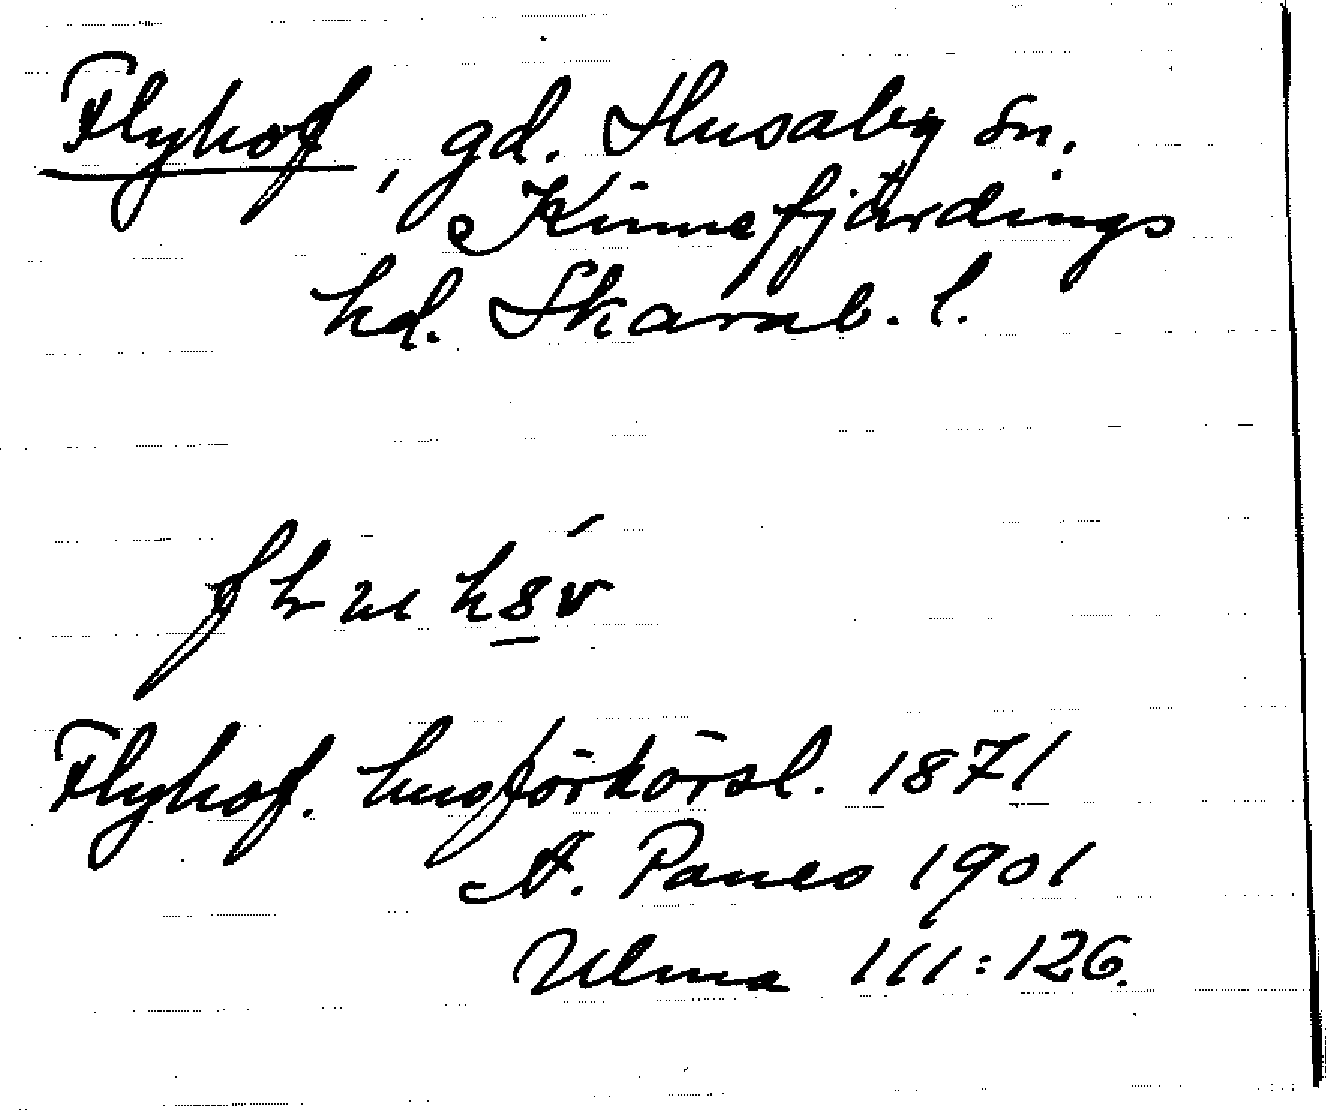 Flyhof, gd. Husaby sn.
Kinnefjärdings
hd. Skarab. l.
Flyhof. husförhörsl. 1871
A. Paues 1901
Ulma 111:126.